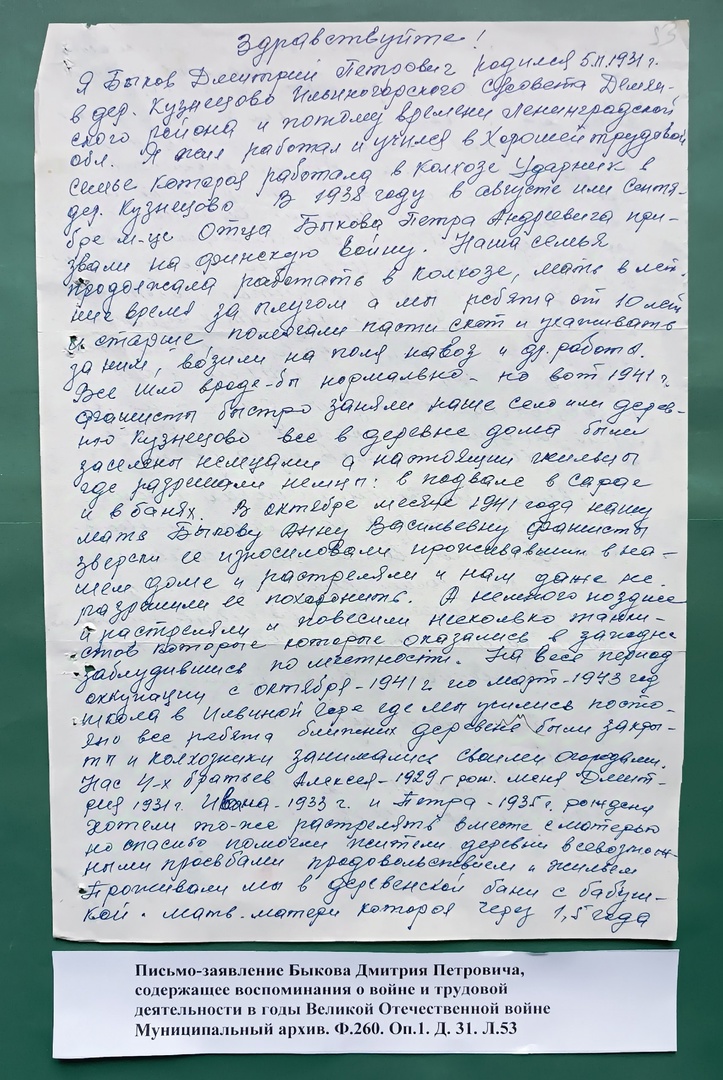 53
Здравствуйте!
Я Быков Дмитрий Петрович родился 5.II.1931 г.
в дер. Кузнецово Ильиногорского с/совета Демян-
ского района и потому времени Ленинградской
обл. Я жил работал и учился в хорошей трудовой
семье которая работала в колхозе Ударник в
дер. Кузнецово В 1938 году в августе или сентя-
бре м-це Отца Быкова Петра Андреевича при-
звали на финскую войну. Наша семья
продолжала работать в колхозе, мать в лет-
ние время за плугом а мы ребята от 10 лет
и старше помогали пасти скот и ухаживать
за ним, возили на поля навоз и др. работы.
Все шло вроде-бы нормально - но вот 1941 г.
фашисты быстро заняли наше село или дерев-
ню Кузнецово все в деревне дома были
заселены немцами а настоящии жильцы
где разрешали немцы: в подвале в сарае
и в банях. В октябре месяце 1941 года нашу
мать Быкову Анну Васильевну фашисты
зверски ее износиловали проживавшии в на-
шем доме и растреляли и нам даже не
разрешили ее похоронить. А немного позднее
и растреляли и повесили несколько танки-
стов которые которые оказались в западне
заблудившись по местности. На весь период
оккупации с октября - 1941 г по март - 1943 год
школа в Ильиной Горе где мы учились посто-
яно все ребята ближних деревень были закры-
ты и колхозники занимались своими огородами.
Нас 4-х братьев Алексея - 1929 г рож. меня Дмит-
рия 1931 г. Ивана - 1933 г. и Петра - 1935 г. рождения
хотели то-же растрелять вместе с матерью
но спасибо помогли жители деревни всевозмож-
ными просьбами продовольствием и жильем
Проживали мы в деревенской бани с бабуш-
кой. мать. матери которая через 1,5 года
Письмо-заявление Быкова Дмитрия Петровича,
содержащее воспоминания о войне и трудовой
деятельности в годы Великой Отечественной войне
Муниципальный архив. Ф.260. Оп.1. Д. 31. Л.53